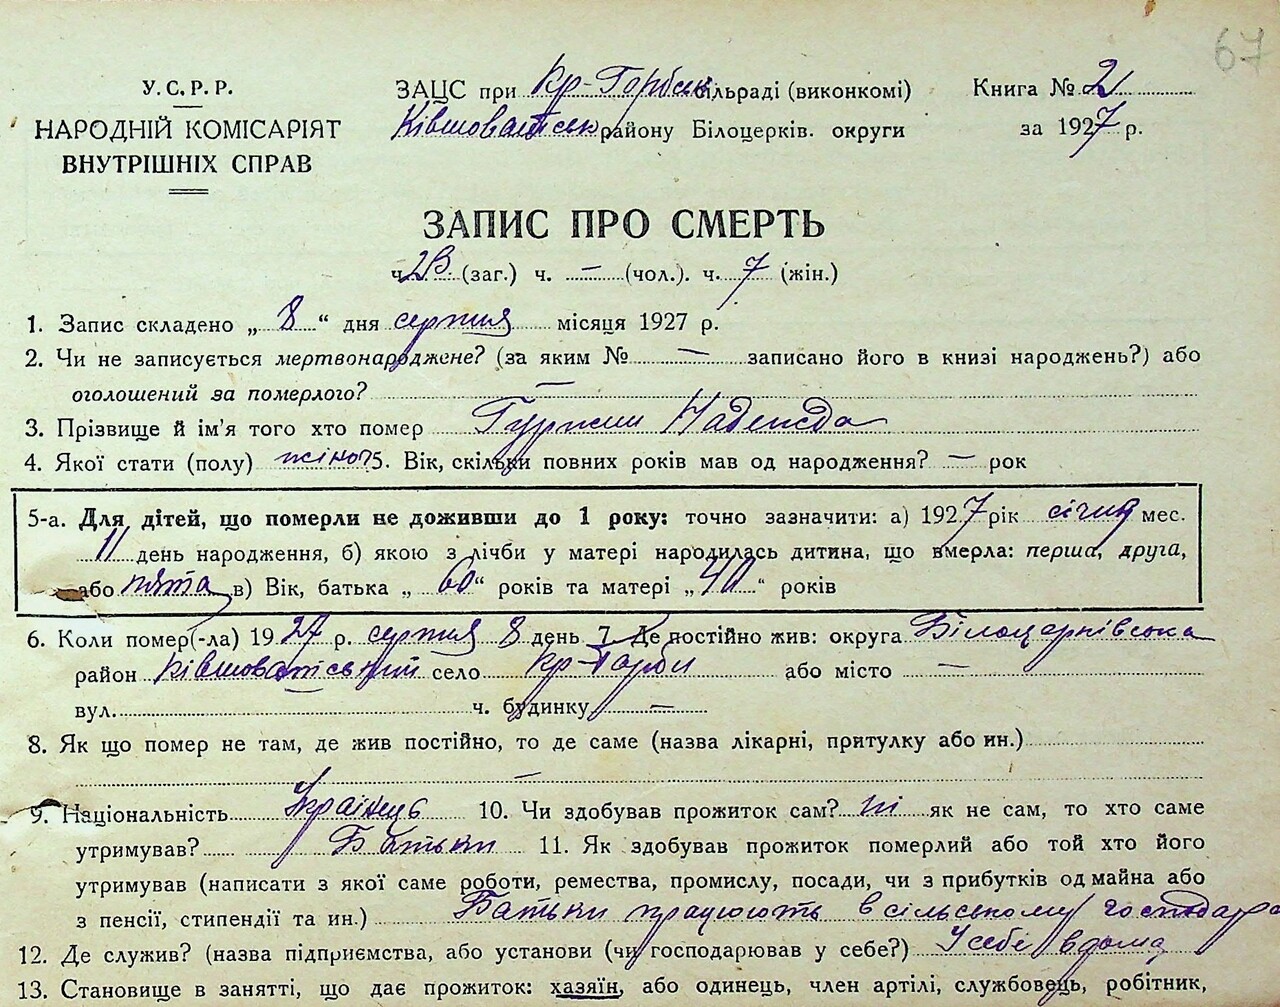 67
У.С.Р.Р.
НАРОДНІЙ КОМІСАРІЯТ
ВНУТРІШНІХ СПРАВ
ЗАЦС при Кр-Горбск сільраді (виконкомі)
Ківшоватськ району Білоцерків. округи
Книга № 2
за 1927 р.
ЗАПИС ПРО СМЕРТЬ
ч. (заг.) ч. — (чол.). ч. 7 (жін.)
1. Запис складено „ 8 “ дня серпня місяця 1927 р.
2. Чи не записується мертвонароджене? (за яким № — записано його в книзі народжень?) або
оголошений за померлого? —
3. Прізвище й ім'я того хто помер Надежда
4. Якої стати (полу) жіноч 5. Вік, скільки повних років мав од народження? — рок
5-а. Для дітей, що померли не доживши до 1 року: точно зазначити: а) 1927 рік січня мес.
11 день народження, б) якою з лічби у матері народилась дитина, що вмерла: перша, друга,
або пята в) Вік, батька „ 60 “ років та матері „ 40 “ років
6. Коли помер(-ла) 1927 р. серпня 8 день 7. Де постійно жив: округа Білоцерківська
район Ківшоватський село Кр-Горби або місто —
вул. ч. будинку —
8. Як що помер не там, де жив постійно, то де саме (назва лікарні, притулку або ин.)
—
9. Національність Українець 10. Чи здобував прожиток сам? ні як не сам, то хто саме
утримував? Батьки 11. Як здобував прожиток померлий або той хто його
утримував (написати з якої саме роботи, ремества, промислу, посади, чи з прибутків од майна або
з пенсії, стипендії та ин.) Батьки працюють в сільському господар
12. Де служив? (назва підприємства, або установи (чи господарював у себе?) У себе вдома
13. Становище в занятті, що дає прожиток: хазяїн, або одинець, член артілі, службовець, робітник,